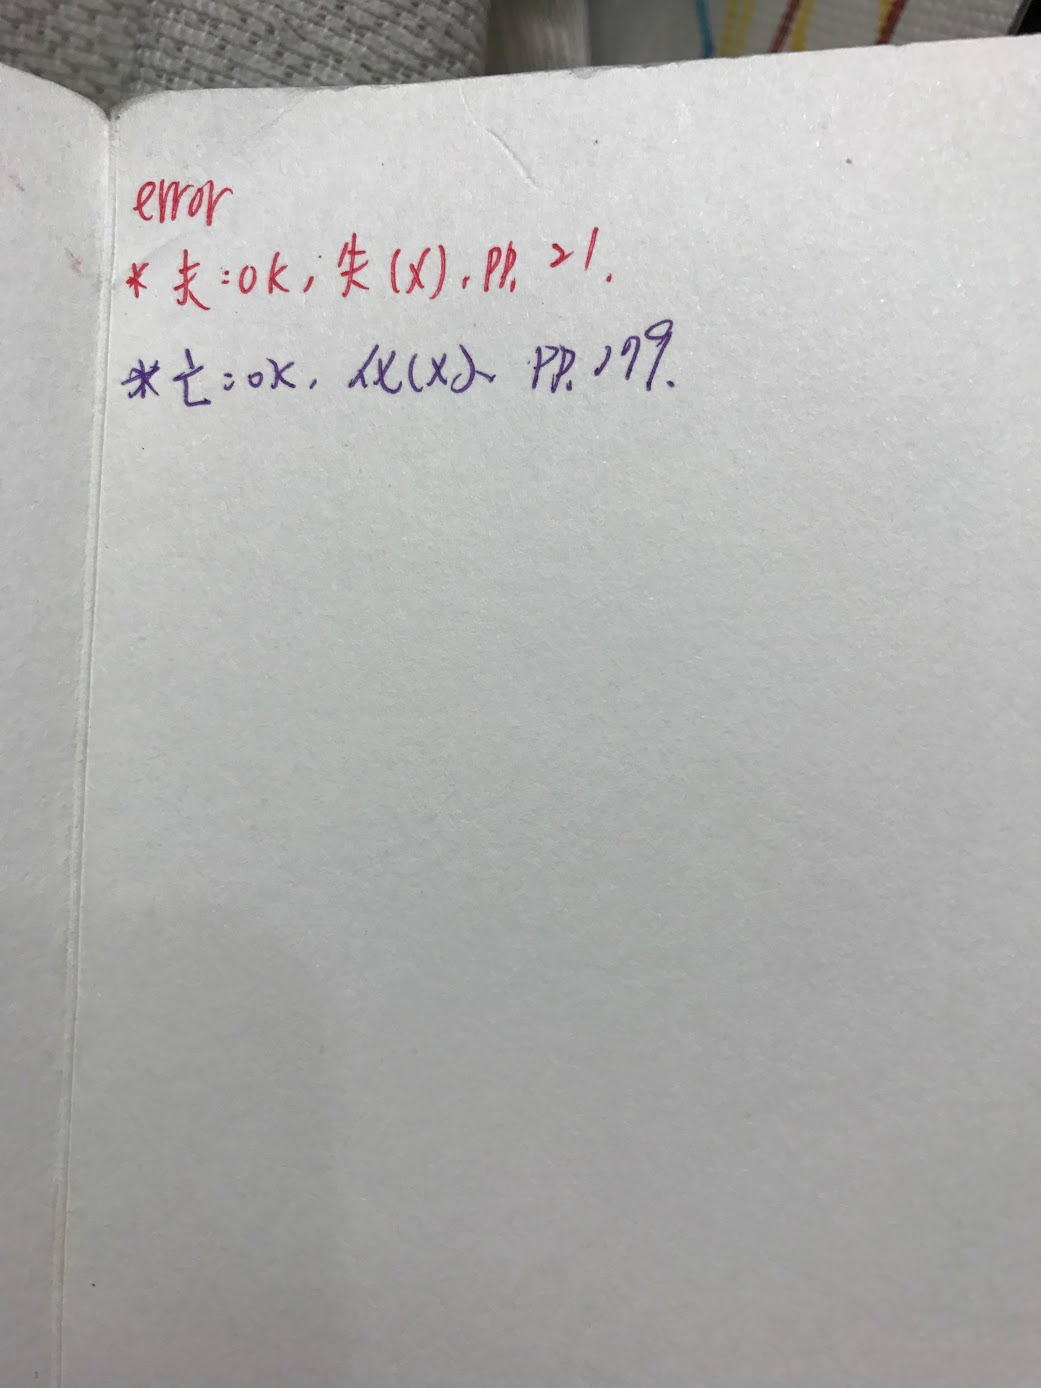 error
* 夫:ok, 失(x), pp. 21.
* 亡:ok, (x), pp. 179.